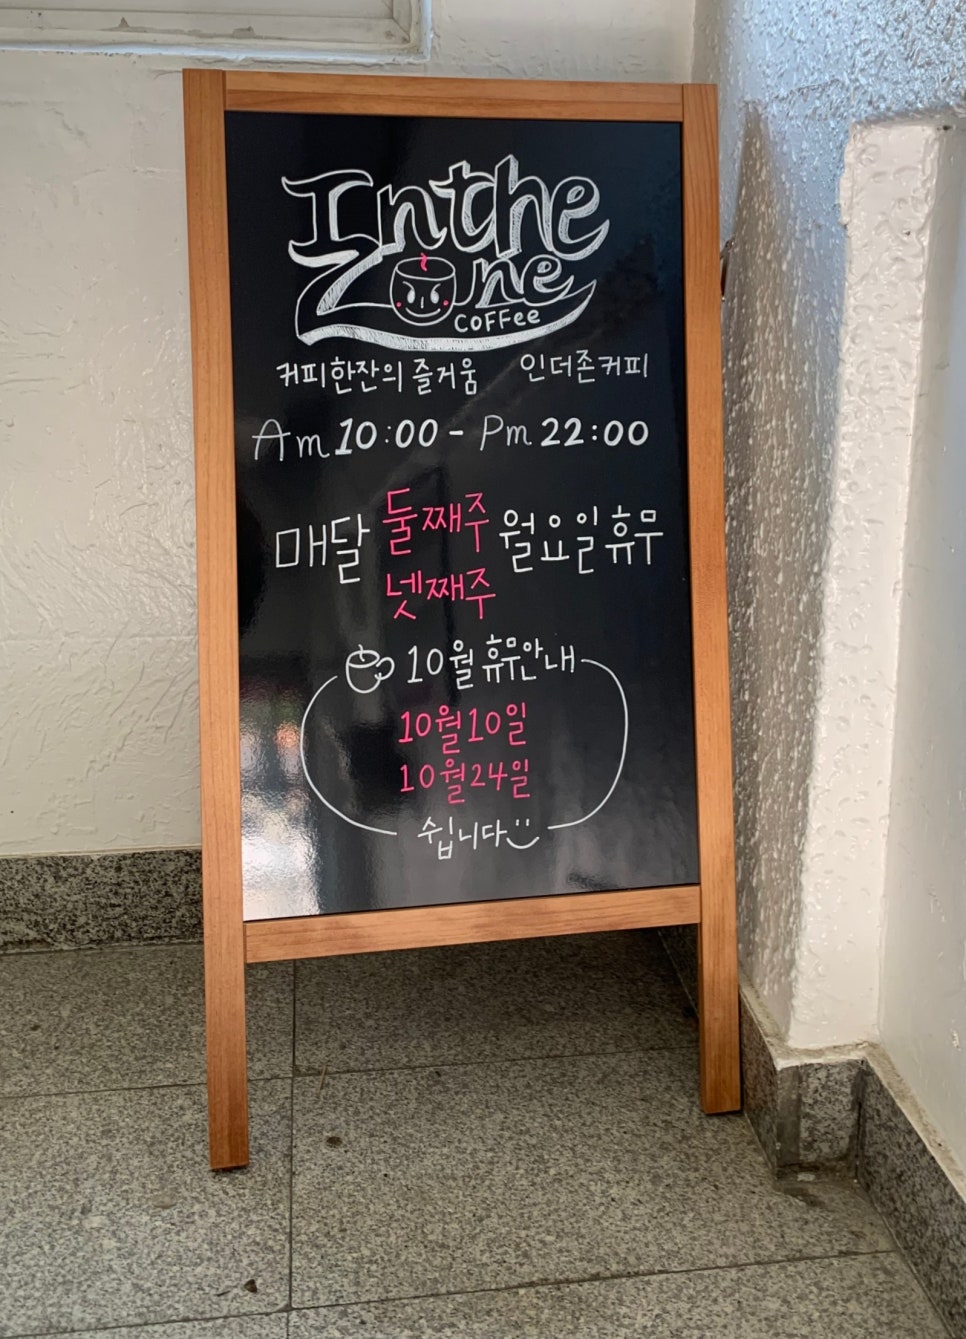 In the
Zone
COFFee
커피한잔의 즐거움 인더존커피
Am 10:00 - Pm 22:00
매달 둘째주 월요일 휴무
넷째주
10월 휴무안내
10월10일
10월24일
쉽니다